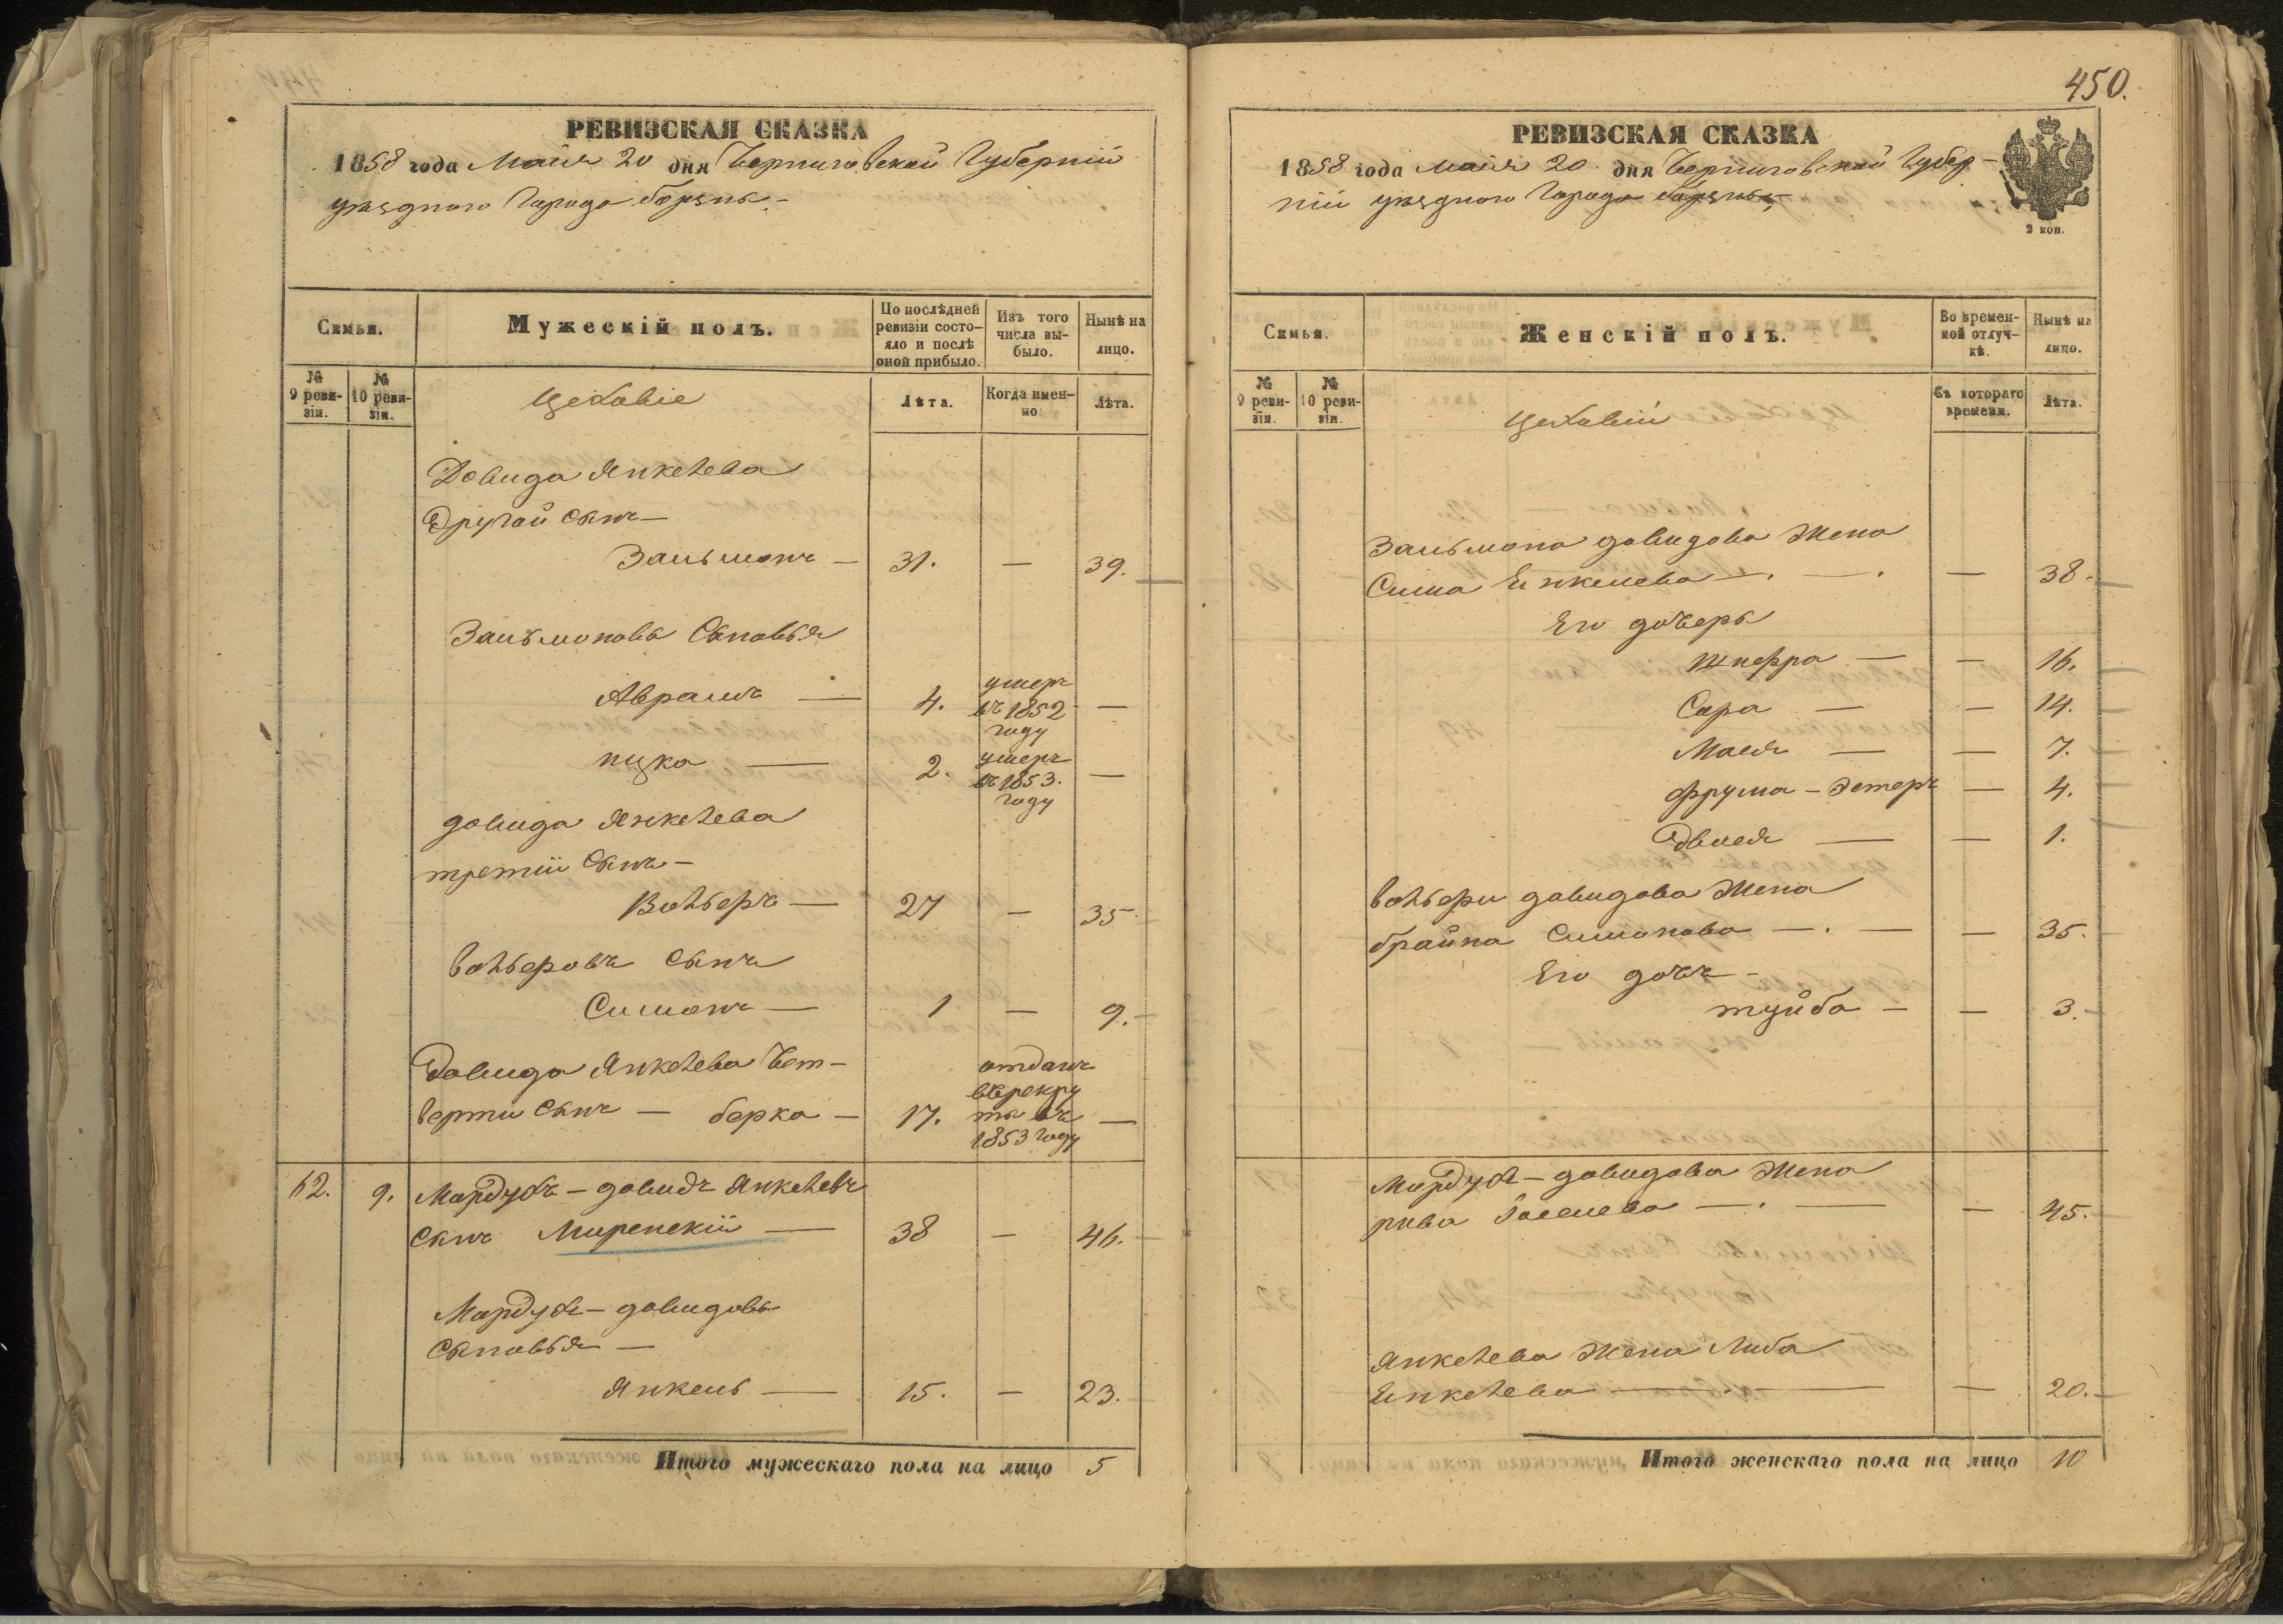 РЕВИЗСКАЯ СКАЗКА
1858 года Майя 20 дня Черниговской Губерніи
уѣзднаго Города борзны
Семьи.
Мужескій полъ.
По послѣдней ревизіи состояло и послѣ оной прибыло.
Изъ того числа выбыло.
Нынѣ на лицо.
№ 9 ревизіи.
№ 10 ревизіи.
Цеховіе
Лѣта.
Когда именно.
Лѣта.
Довида Янкелева
Другой Сынъ —
Зальманъ — 31. — 39.
Зальмановы Сыновья
Аврамъ — 4. умеръ въ 1852 году —
ицка — 2. умеръ въ 1853. году —
довида Янкелева
третіи Сынъ —
Вольферъ — 27 — 35
вольферовъ Сынъ
Симонъ — 1 — 9.
Довида Янкелева Чет-
верти Сынъ — берка — 17. отданъ въ рекруты въ 1853 году —
62. 9. Мардухъ – довидъ Янкелевъ
Сынъ Миренскій — 38 — 46.
Мардухъ – довидовы
Сыновья —
Янкель — 15. — 23.
Итого мужескаго пола на лицо 5
450.
РЕВИЗСКАЯ СКАЗКА
1858 года майя 20 дня Черниговской Губер-
ніи уѣзднаго Города борзны
2 коп.
Семья.
Женскій полъ.
Во временной отлучкѣ.
Нынѣ на лицо.
№ 9 ревизіи.
№ 10 ревизіи.
Цеховіи
Съ котораго времени.
Лѣта.
Зальмана довидова Жена
Сима Янкелева — . — . — 38.
Его дочеры
Шифра — — 16.
Сара — — 14.
Мася — — 7.
Фрума – Эстеръ — 4.
Двися — — 1.
вольфери довидова Жена
брайна Симонова — . — — 35.
Его дочь –
туйба — — 3.
Мардухъ – довидова Жена
рива — . — — 45.
Янкелева Жена Либа
Янкелева — — 20.
Итого женскаго пола на лицо 10